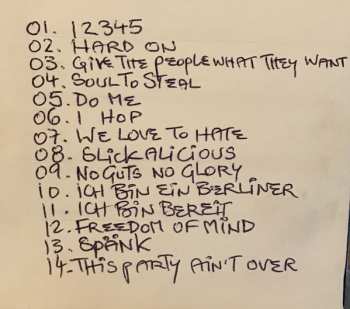 01. 12345
02. HARD ON
03. GIVE THE PEOPLE WHAT THEY WANT
04. SOUL TO STEAL
05. DO ME
06. I HOP
07. WE LOVE TO HATE
08. SLICKALICIOUS
09. NO GUTS NO GLORY
10. ICH BIN EIN BERLINER
11. ICH BIN BEREIT
12. FREEDOM OF MIND
13. SPÄNK
14. THIS PARTY AIN'T OVER